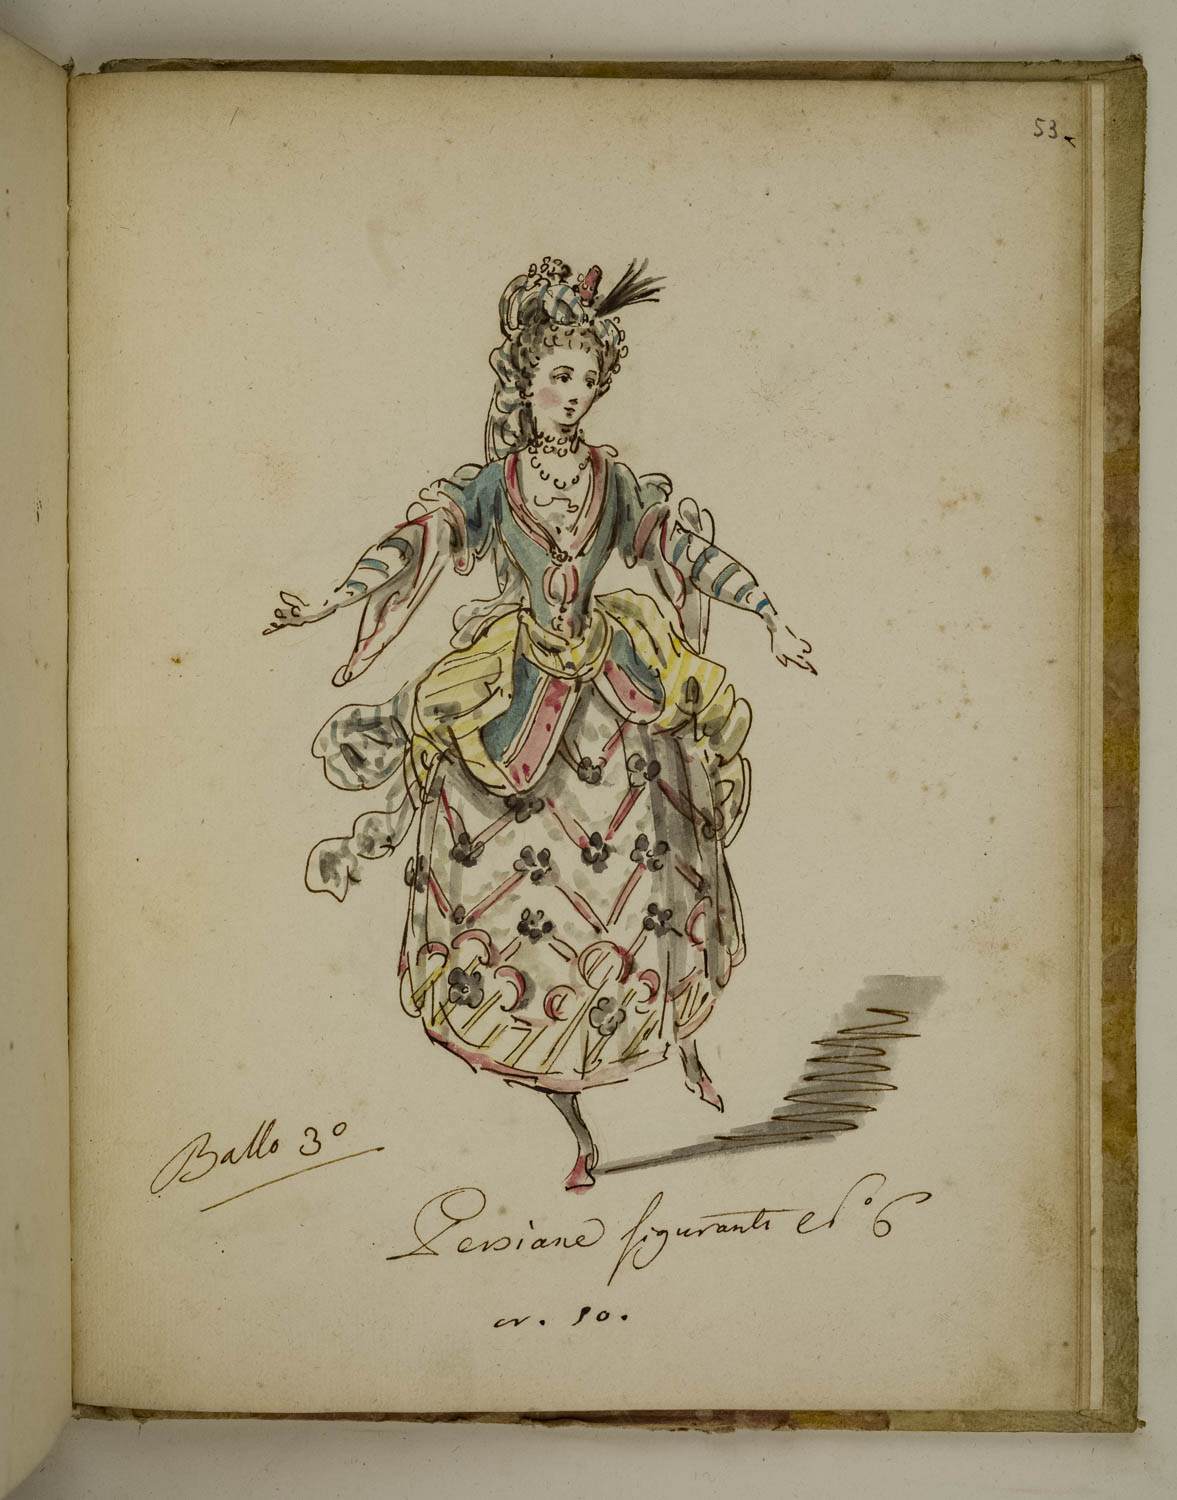 53.
Ballo 3º
Persiane figuranti Nº 6
nr. 10.